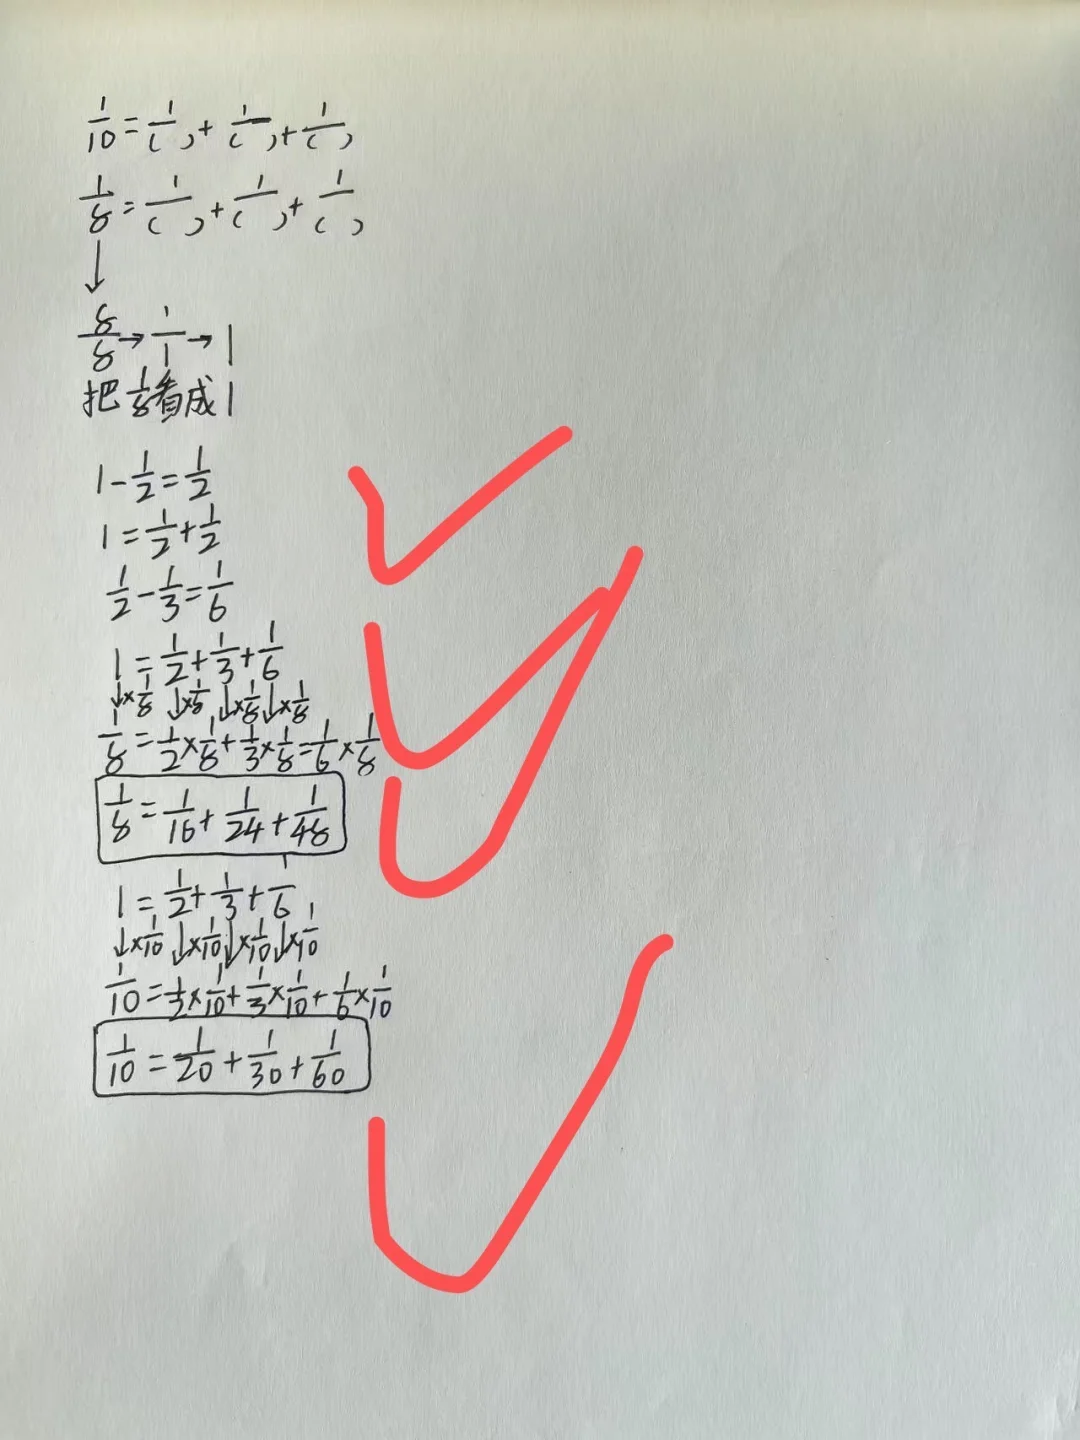 1/10=1/( )+1/( )+1/( )
1/8=1/( )+1/( )+1/( )
↓
8/8→1/1→1
把1/8看成1
1-1/2=1/2
1=1/2+1/2
1/2-1/3=1/6
1=1/2+1/3+1/6
↓×1/8 ↓×1/8 ↓×1/8 ↓×1/8
1/8=1/2×1/8+1/3×1/8=1/6×1/8
1/8=1/16+1/24+1/48
1=1/2+1/3+1/6
↓×1/10 ↓×1/10 ↓×1/10 ↓×1/10
1/10=1/2×1/10+1/3×1/10+1/6×1/10
1/10=1/20+1/30+1/60